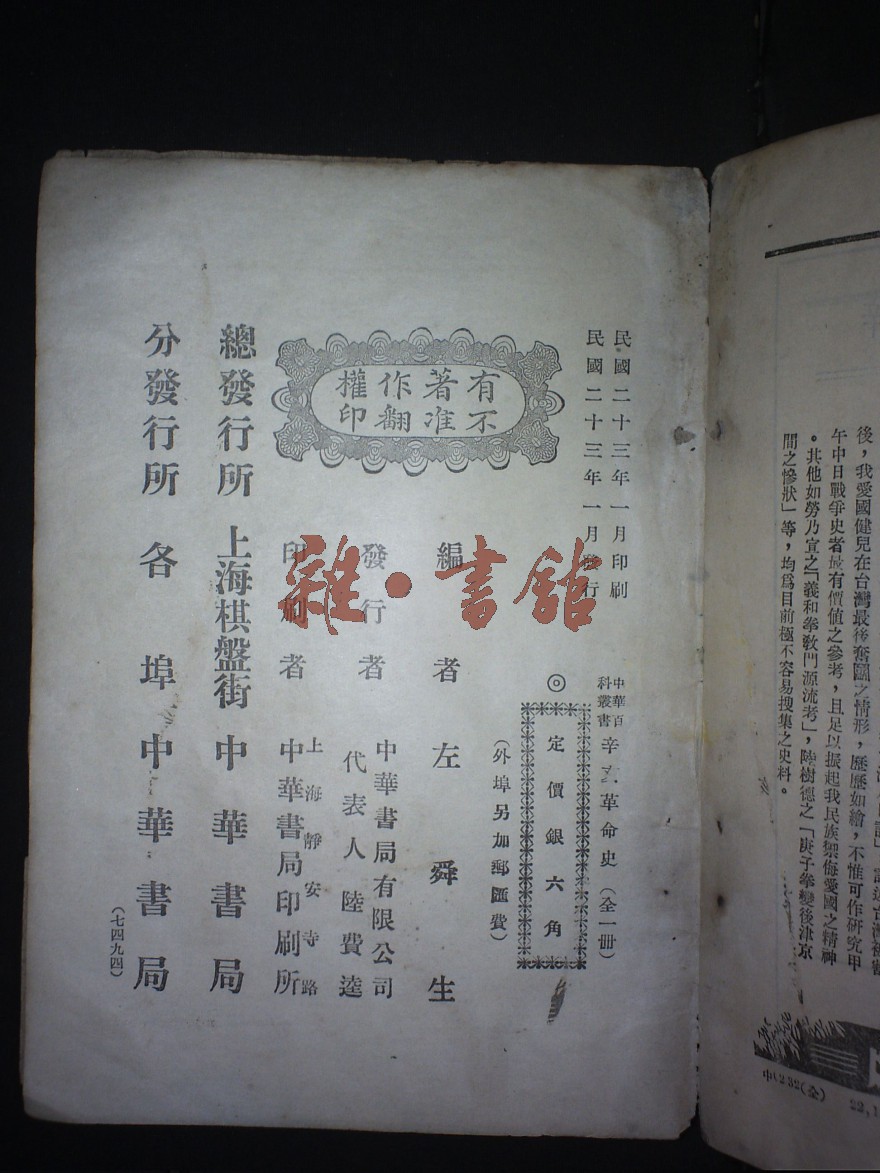 民國二十三年一月印刷
民國二十三年一月發行
中華百科叢書 辛亥革命史（全一冊）
◎定價銀六角
（外埠另加郵匯費）
有著作權
不准翻印
編者 左舜生
發行者 中華書局有限公司
代表人 陸費逵
印刷者 上海靜安寺路
中華書局印刷所
總發行所 上海棋盤街 中華書局
分發行所 各埠 中華書局
（七四九四）
雜·書館
後，我愛國健兒在台灣最後奮鬭之情形，歷歷如繪，不惟可作研究甲
午中日戰爭史者最有價値之參考，且足以振起我民族禦侮愛國之精神
。其他如勞乃宣之「義和拳敎門源流考」，陸樹德之「庚子拳變後津京
間之慘狀」等，均爲目前極不容易搜集之史料。
中(232(全)
22,1